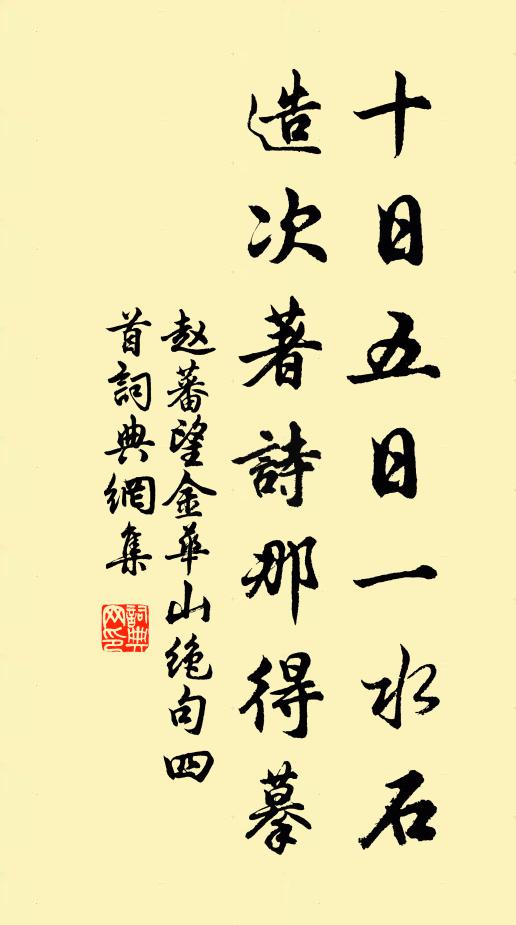 十日五日一水石
造次著詩那得摹
赵蕃望金華山绝句四
首詞典網集
詞典网印